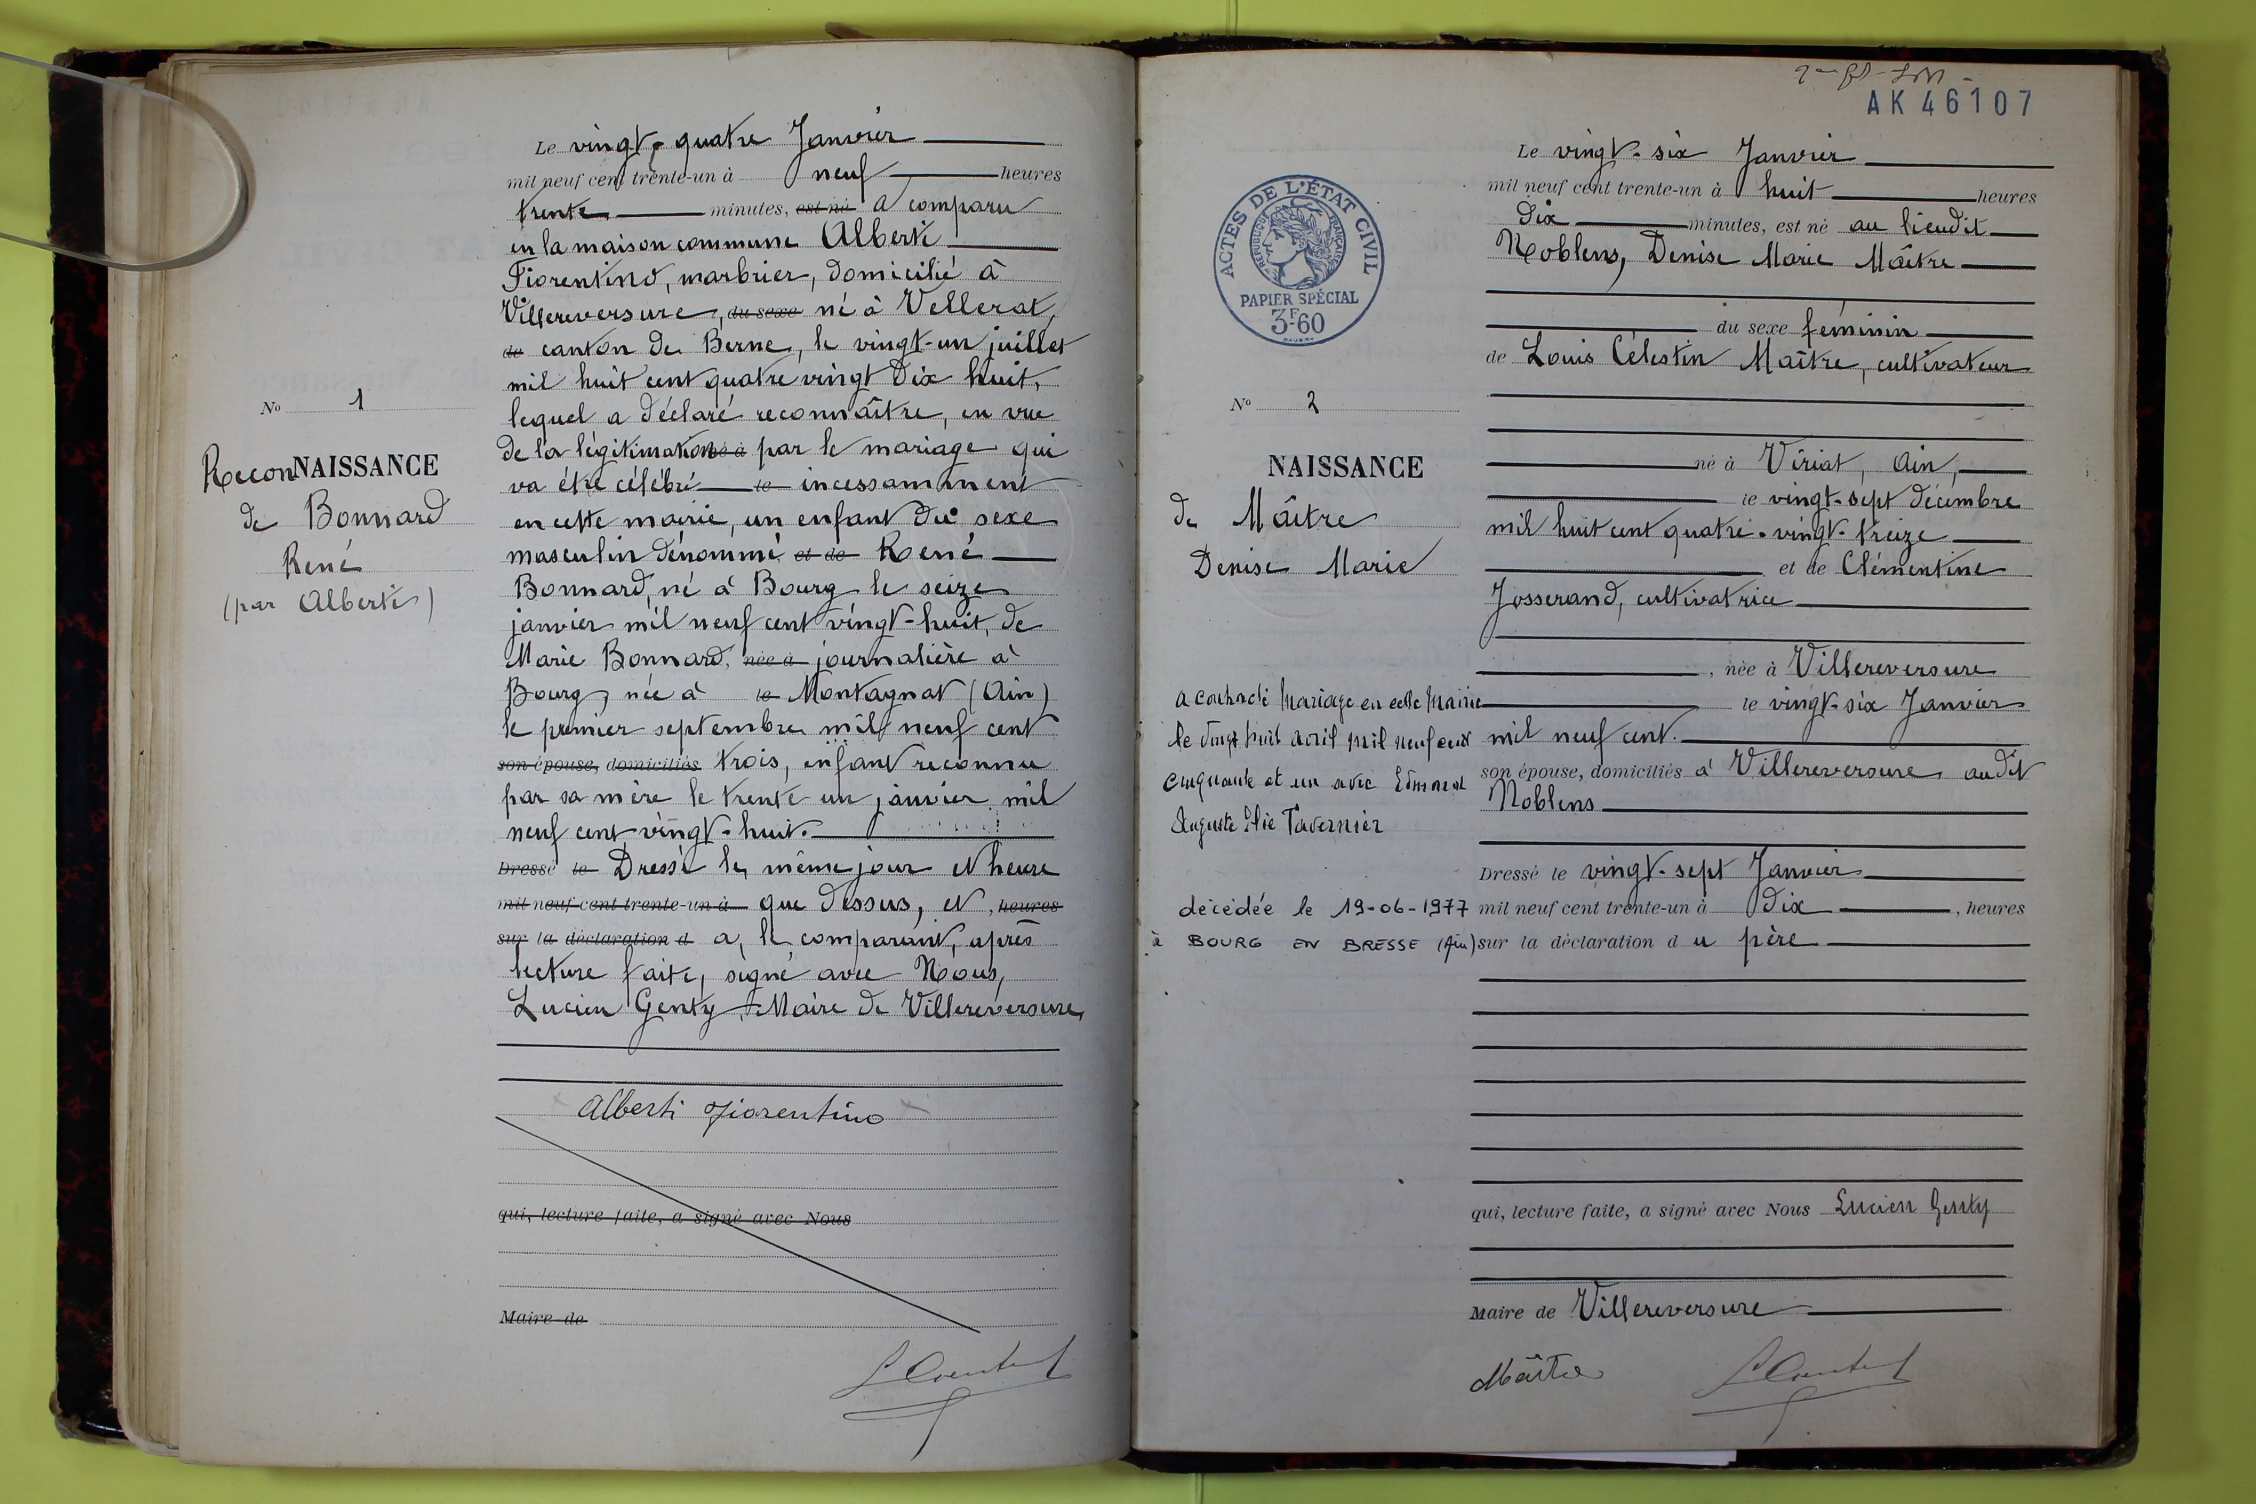 Le vingt-quatre Janvier
mil neuf cent trente-un à neuf heures
trente minutes, est né a comparu
en la maison commune Alberti
Fiorentino, marbrier, domicilié à
Villereversure, du sexe né à Vellerat,
de canton de Berne, le vingt-un juillet
mil huit cent quatre vingt dix huit,
lequel a déclaré reconnaître, en vue
de la légitimation né à par le mariage qui
va être célébré le incessamment
en cette mairie, un enfant du sexe
masculin dénommé et de René
Bonnard, né à Bourg le seize
janvier mil neuf cent vingt-huit, de
Marie Bonnard, née à journalière à
Bourg, née à le Montagnat (Ain)
le premier septembre mil neuf cent
son épouse, domiciliés trois, enfant reconnu
par sa mère le trente un janvier mil
neuf cent vingt-huit.
Dressé le Dressé le même jour et heure
mil neuf cent trente-un à que dessus, et, heures
sur la déclaration d a, le comparant, après
lecture faite, signé avec Nous,
Lucien Genty, Maire de Villereversure,
Alberti Fiorentino
qui, lecture faite, a signé avec Nous
Maire de
No 1
ReconNAISSANCE
de Bonnard
René
(par Alberti)
AK 46107
Le vingt-six Janvier
mil neuf cent trente-un à huit heures
dix minutes, est né au lieudit
Noblens, Denise Marie Maître
du sexe féminin
de Louis Célestin Maître, cultivateur
né à Viriat, Ain,
le vingt-sept décembre
mil huit cent quatre-vingt-treize
et de Clémentine
Josserand, cultivatrice
, née à Villereversure
le vingt-six Janvier
mil neuf cent.
son épouse, domiciliés à Villereversure, audit
Noblens
Dressé le vingt-sept Janvier
mil neuf cent trente-un à dix, heures
sur la déclaration du père
qui, lecture faite, a signé avec Nous Lucien Genty
Maire de Villereversure
Maître
ACTES DE L'ÉTAT CIVIL
RÉPUBLIQUE FRANÇAISE
PAPIER SPÉCIAL
3F60
No 2
NAISSANCE
de Maître
Denise Marie
a contracté mariage en cette Mairie
le vingt huit avril mil neuf cent
cinquante et un avec Edmond
Auguste Elie Tavernier
décédée le 19-06-1977
à BOURG EN BRESSE (Ain)